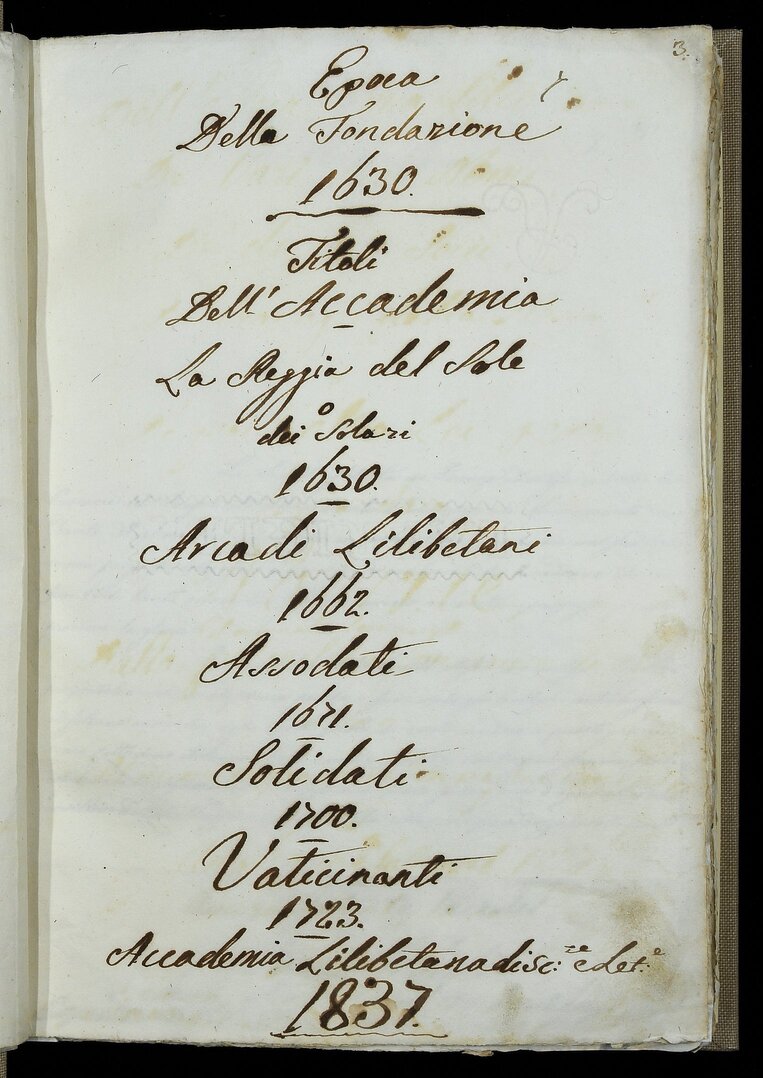 3.
Epoca
Della Fondazione
1630.
Titoli
Dell' Accademia
La Reggia del Sole
o
dei Solari
1630.
Arcadi Lilibetani
1662.
Assodati
1671.
Solidati
1700.
Vaticinanti
1723.
Accademia Lilibetana di sc:ze e Let:e
1837.